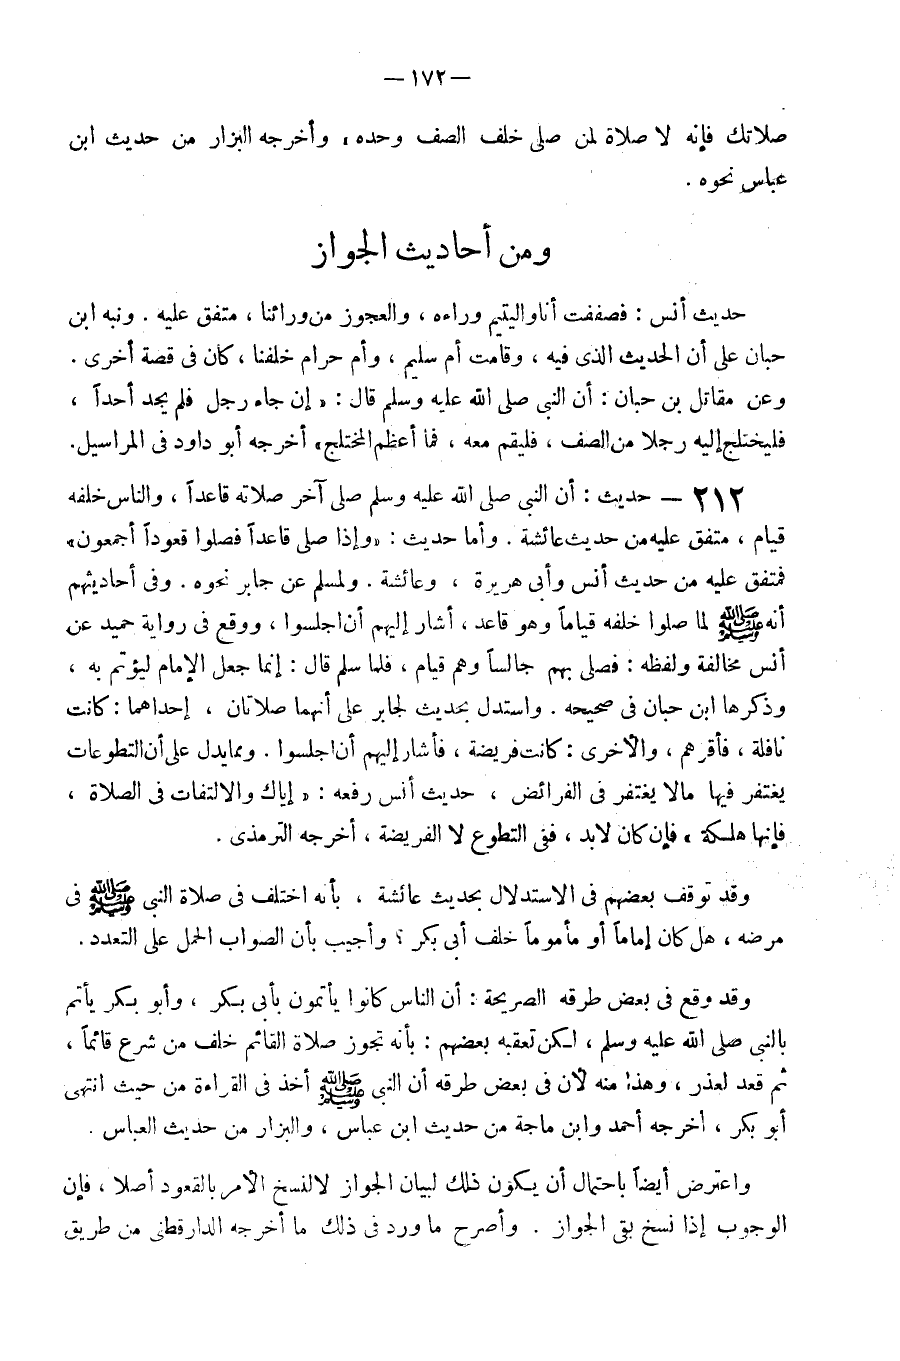 — ١٧٢ —
صلاتك فإنه لا صلاة لمن صلى خلف الصف وحده، وأخرجه البزار من حديث ابن
عباس نحوه .
ومن أحاديث الجواز
حديث أنس : فصففت أنا واليتيم وراءه ، والعجوز من ورائنا ، متفق عليه . ونبه ابن
حبان على أن الحديث الذى فيه ، وقامت أم سليم ، وأم حرام خلفنا ، كان فى قصة أخرى .
وعن مقاتل بن حبان : أن النبى صلى الله عليه وسلم قال : « إن جاء رجل فلم يجد أحداً ،
فليختلج إليه رجلا من الصف ، فليقم معه ، فما أعظم المختلج» أخرجه أبو داود فى المراسيل.
٢١٢ — حديث : أن النبى صلى الله عليه وسلم صلى آخر صلاته قاعداً ، والناس خلفه
قيام ، متفق عليه من حديث عائشة . وأما حديث : «وإذا صلى قاعداً فصلوا قعوداً أجمعون»
فمتفق عليه من حديث أنس وأبى هريرة ، وعائشة . ولمسلم عن جابر نحوه . وفى أحاديثهم
أنه ﷺ لما صلوا خلفه قياماً وهو قاعد ، أشار إليهم أن اجلسوا ، ووقع فى رواية حميد عن
أنس مخالفة ولفظه : فصلى بهم جالساً وهم قيام ، فلما سلم قال : إنما جعل الإمام ليؤتم به ،
وذكرها ابن حبان فى صحيحه . واستدل بحديث لجابر على أنهما صلاتان ، إحداهما : كانت
نافلة ، فأقرهم ، والأخرى : كانت فريضة ، فأشار إليهم أن اجلسوا . ومما يدل على أن التطوعات
يغتفر فيها مالا يغتفر فى الفرائض ، حديث أنس رفعه : « إياك والالتفات فى الصلاة ،
فإنها هلكة » فإن كان لابد ، ففى التطوع لا الفريضة ، أخرجه الترمذى .
وقد توقف بعضهم فى الاستدلال بحديث عائشة ، بأنه اختلف فى صلاة النبى ﷺ فى
مرضه ، هل كان إماماً أو مأموماً خلف أبى بكر ؟ وأجيب بأن الصواب الحمل على التعدد .
وقد وقع فى بعض طرقه الصريحة : أن الناس كانوا يأتمون بأبى بكر ، وأبو بكر يأتم
بالنبى صلى الله عليه وسلم ، لكن تعقبه بعضهم : بأنه تجوز صلاة القائم خلف من شرع قائماً ،
ثم قعد لعذر ، وهذا منه لأن فى بعض طرقه أن النبى ﷺ أخذ فى القراءة من حيث انتهى
أبو بكر ، أخرجه أحمد وابن ماجة من حديث ابن عباس ، والبزار من حديث العباس .
واعترض أيضاً باحتمال أن يكون ذلك لبيان الجواز لا لنسخ الأمر بالقعود أصلا ، فإن
الوجوب إذا نسخ بقى الجواز . وأصرح ما ورد فى ذلك ما أخرجه الدارقطنى من طريق